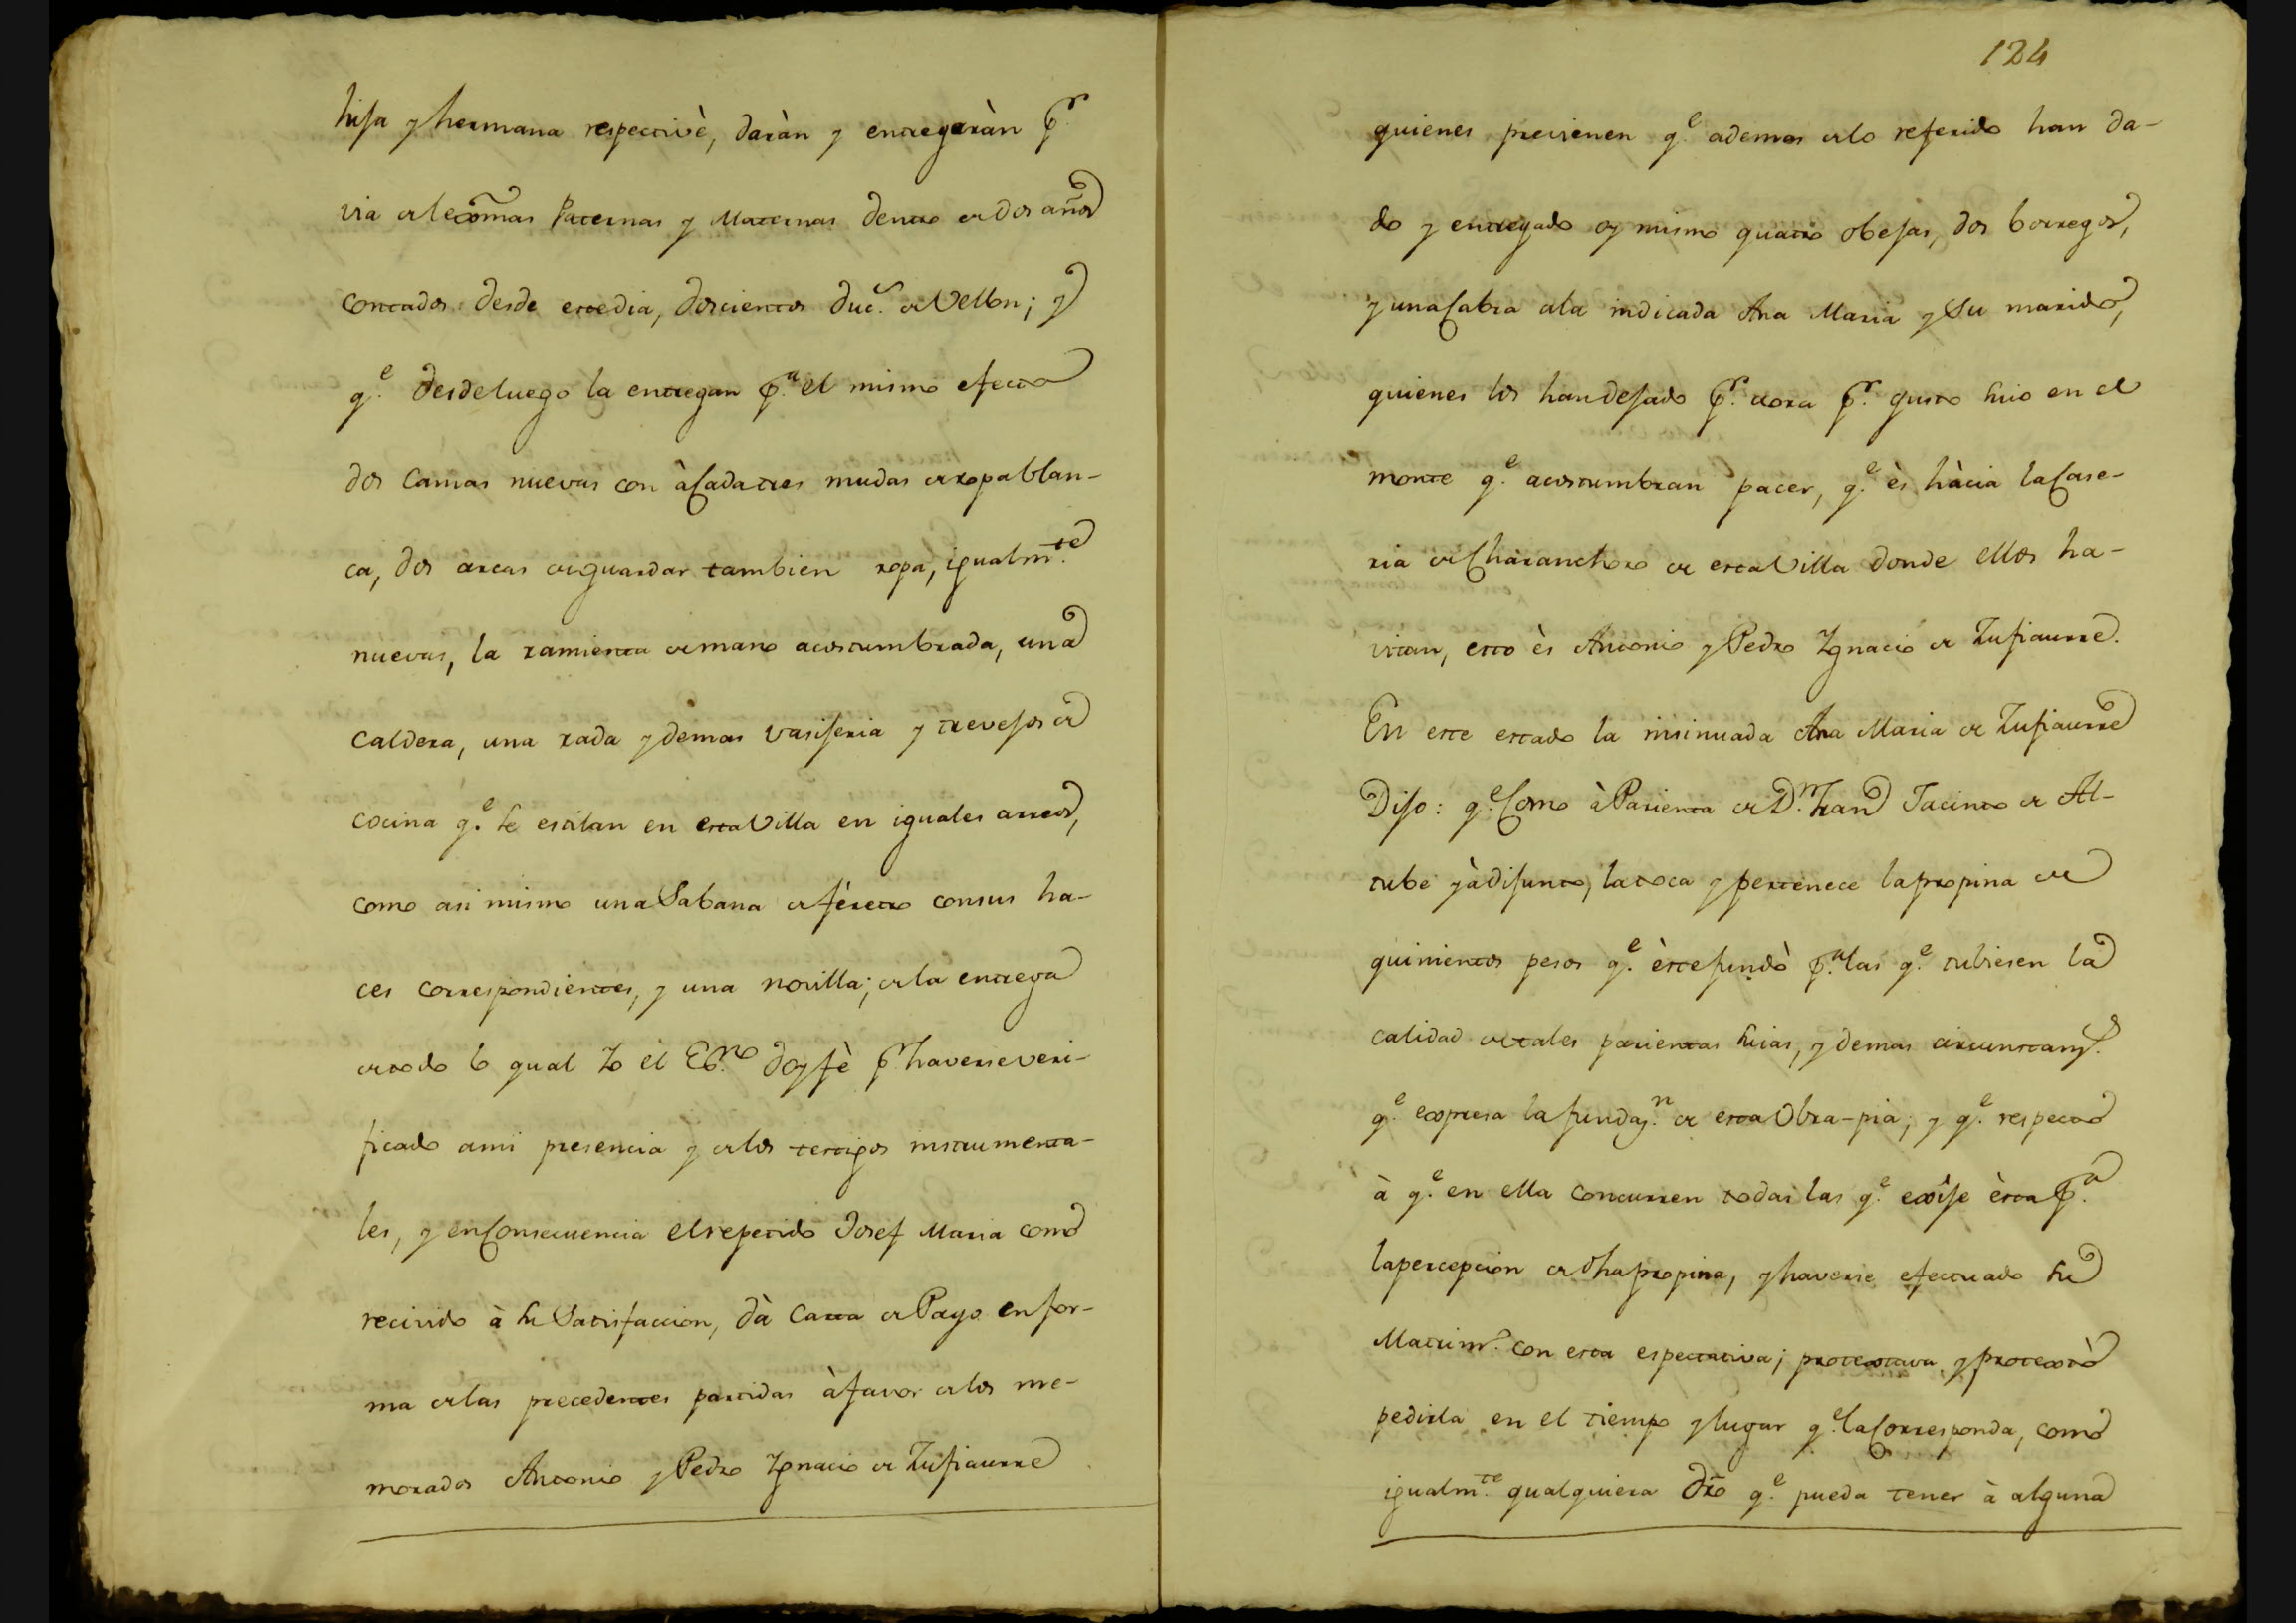 hija y hermana respectivè, daràn y entregaràn p.r
via de lexõmas Paternas y Maternas dentro de dos años
contados desde este dia, doscientos duc.s de Vellon; y
q.e desde luego la entregan p.a el mismo efecto
dos camas nuevas con à Cada tres mudas de ropa blan-
ca, dos arcas de guardar tambien ropa, igualm.te
nuevas, la ramienta de mano acostumbrada, una
caldera, una rada y demas vasijeria y trevejos de
cocina q.e se estilan en esta Villa en iguales arreos,
como asi mismo una Sabana de fèretro con sus ha-
ces correspondientes, y una novilla; de la entrega
de todo lo qual Yo el Es.no doy fè p.r haverse veri-
ficado a mi presencia y de los testigos instrumenta-
les, y en Consecuencia el repetido Josef Maria como
recivido à su Satisfaccion, dà Carta de Pago en for-
ma de las precedentes partidas à favor de los me-
morados Antonio y Pedro Ygnacio de Zufiaurre
124
quienes previenen q.e ademas de lo referido han da-
do y entregado oy mismo quatro obejas, dos borregos,
y una Cabra a la indicada Ana Maria y Su marido,
quienes los han dejado p.r aora p.r gusto suio en el
monte q.e acostumbran pacer, q.e ès hàcia la Case-
ria de Charanchoro de esta Villa donde ellos ha-
vitan, esto ès Antonio y Pedro Ygnacio de Zufiaurre.
En este estado la insinuada Ana Maria de Zufiaurre
Dijo: q.e Como à Parienta de D.n Fran Jacinto de Al-
tube yà difunto, la toca y pertenece la propina de
quinientos pesos q.e èste fundò p.a las q.e tubiesen la
calidad de tales parientas suias, y demas circunstanz.s
q.e expresa la fundaz.n de esta Obra-pia; y q.e respecto
à q.e en ella concurren todas las q.e exîje èsta p.a
la percepcion de dha propina, y haverse efectuado su
Matrim.o con esta espectativa; protextava y protextò
pedirla en el tiempo y lugar q.e la Corresponda, como
igualm.te qualquiera dro q.e pueda tener à alguna